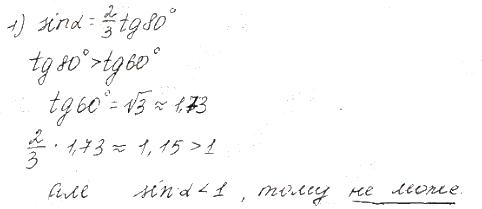 1) sinα = 2/3 tg80°
tg80° > tg60°
tg60° = √3 ≈ 1,73
2/3 · 1,73 ≈ 1,15 > 1
але sinα < 1, тому не може